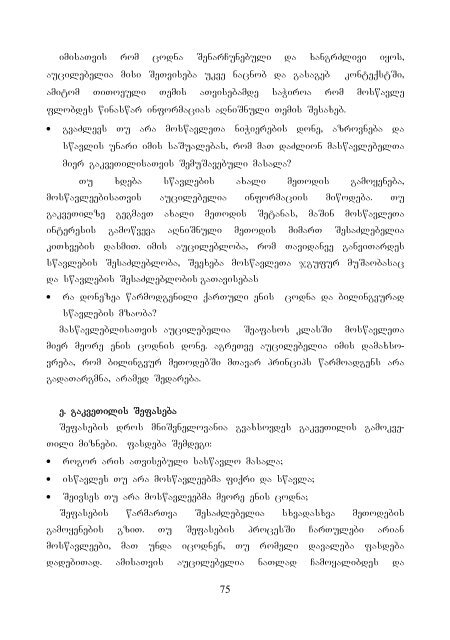 იმისათვის რომ ცოდნა შენარჩუნებული და ხანგრძლივი იყოს,
აუცილებელია მისი შეთვისება უკვე ნაცნობ და გასაგებ კონტექსტში,
ამიტომ თითოეული თემის ათვისებამდე საჭიროა რომ მოსწავლე
ფლობდეს წინასწარ ინფორმაციას აღნიშნული თემის შესახებ.
• გვაძლევს თუ არა მოსწავლეთა ნიჭიერების დონე, აზროვნება და
სწავლის უნარი იმის საშუალებას, რომ მათ დაძლიონ მასწავლებელთა
მიერ გაკვეთილისათვის შემუშავებული მასალა?
თუ ხდება სწავლების ახალი მეთოდის გამოყენება,
მოსწავლეებისათვის აუცილებელია ინფორმაციის მიწოდება. თუ
გაკვეთილზე გეგმავთ ახალი მეთოდის შეტანას, მაშინ მოსწავლეთა
ინტერესის გამოწვევა აღნიშნული მეთოდის მიმართ შესაძლებელია
კითხვების დასმით. იმის აუცილებლობა, რომ თავიდანვე განვითარდეს
სწავლების შესაძლებლობა, შეეხება მოსწავლეთა ჯგუფურ მუშაობასაც
და სწავლების შესაძლებლობის გათავისებას
• რა დონეზეა წარმოდგენილი ქართული ენის ცოდნა და ბილინგვურად
სწავლების მზაობა?
მასწავლებლისათვის აუცილებელია შეაფასოს კლასში მოსწავლეთა
მიერ მეორე ენის ცოდნის დონე. აგრეთვე აუცილებელია იმის დამახსო-
ვრება, რომ ბილინგვურ მეთოდებში მთავარ პრინციპს წარმოადგენს არა
გადათარგმნა, არამედ შედარება.
ე. გაკვეთილის შეფასება
შეფასების დროს მნიშვნელოვანია გვახსოვდეს გაკვეთილის გამოკვე-
თილი მიზნები. ფასდება შემდეგი:
• როგორ არის ათვისებული სასწავლო მასალა;
• ისწავლეს თუ არა მოსწავლეებმა ფიქრი და სწავლა;
• შეივსეს თუ არა მოსწავლეებმა მეორე ენის ცოდნა;
შეფასების წარმართვა შესაძლებელია სხვადასხვა მეთოდების
გამოყენების გზით. თუ შეფასების პროცესში ჩართულები არიან
მოსწავლეები, მათ უნდა იცოდნენ, თუ რომელი დავალება ფასდება
დადებითად. ამისათვის აუცილებელია ნათლად ჩამოყალიბდეს და
75